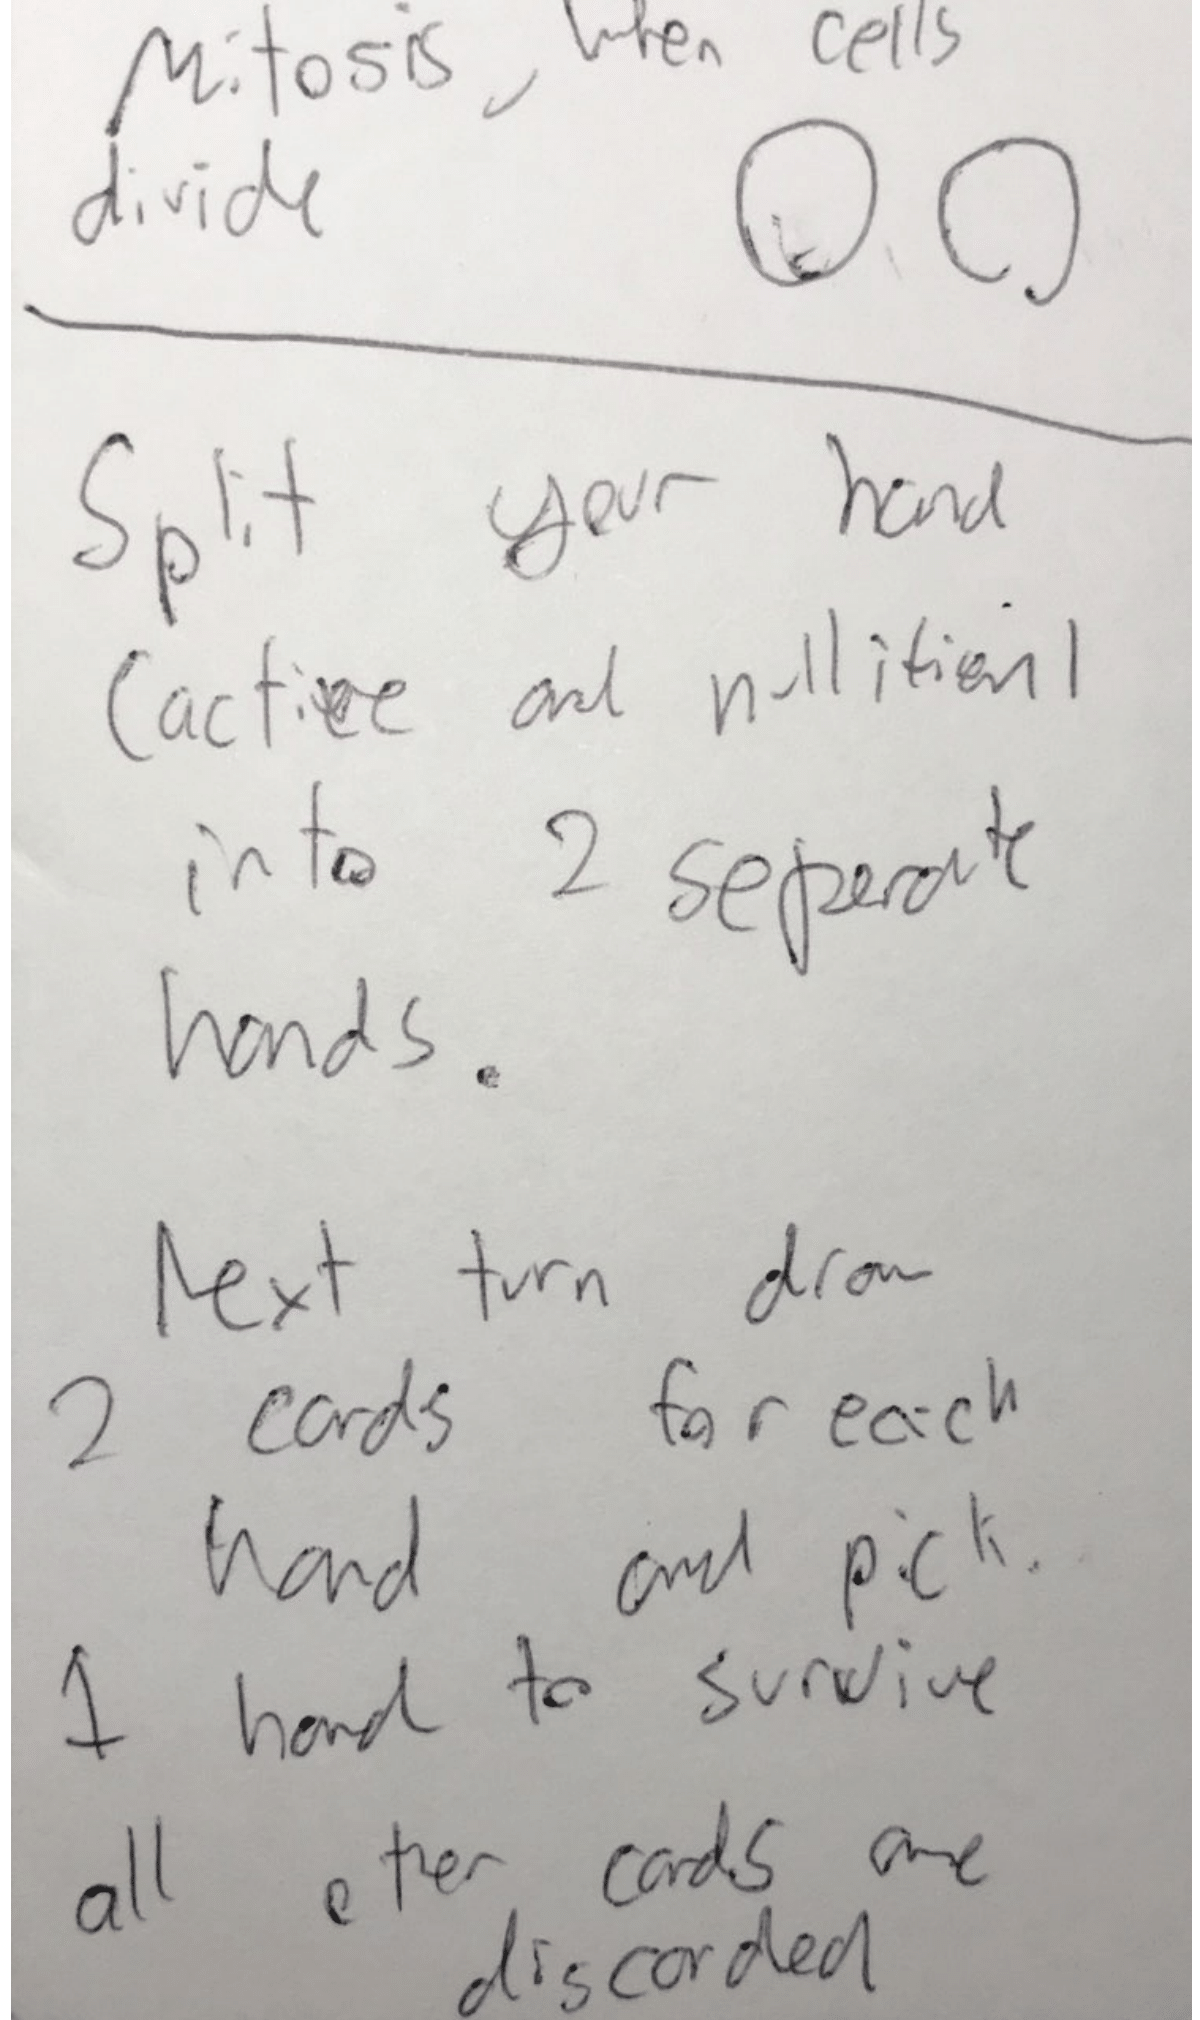 Mitosis, when cells
divide
Split your hand
(active and nullitionl
into 2 seperate
hands.
Next turn draw
2 cards for each
hand and pick.
1 hand to survive
all other cards are
discarded